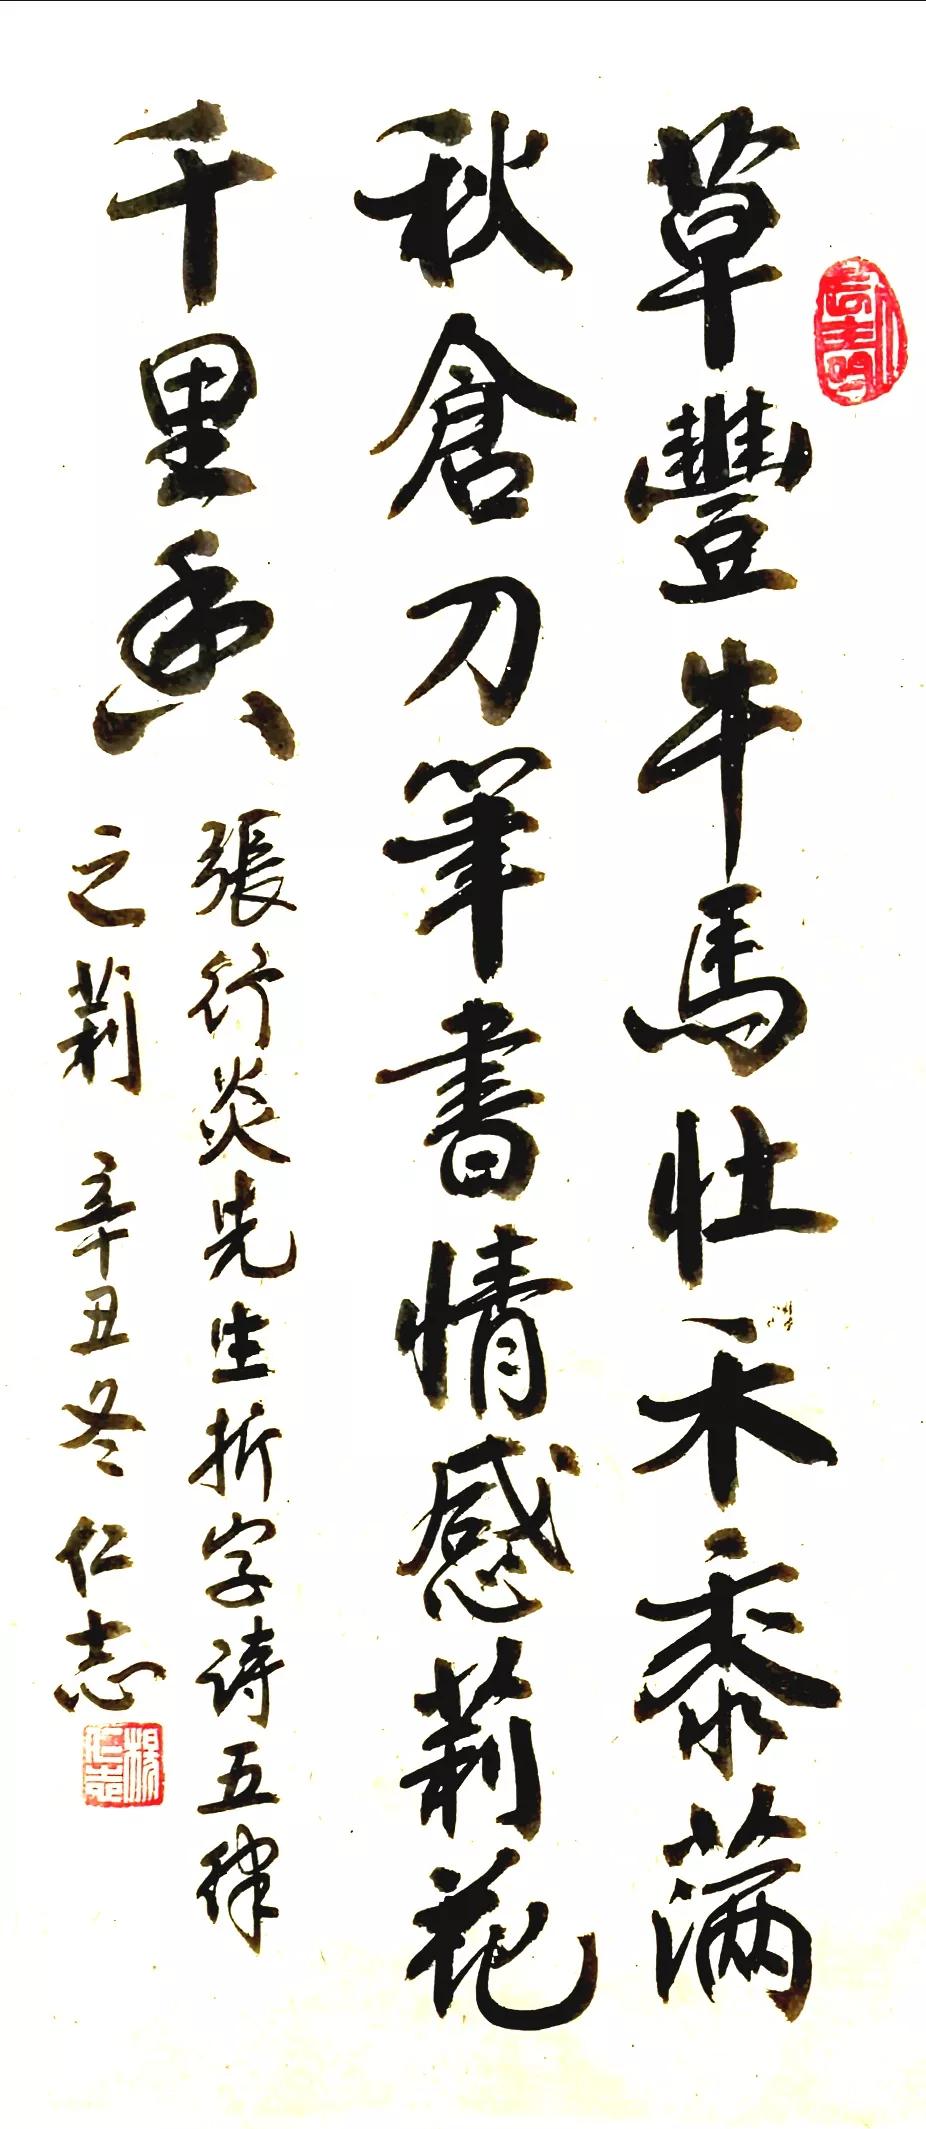 草豐牛馬壯禾黍满
秋倉刀筆書情感莉花
千里香
張行炎先生折字诗五律
之莉 辛丑冬 仁志
楊仁志